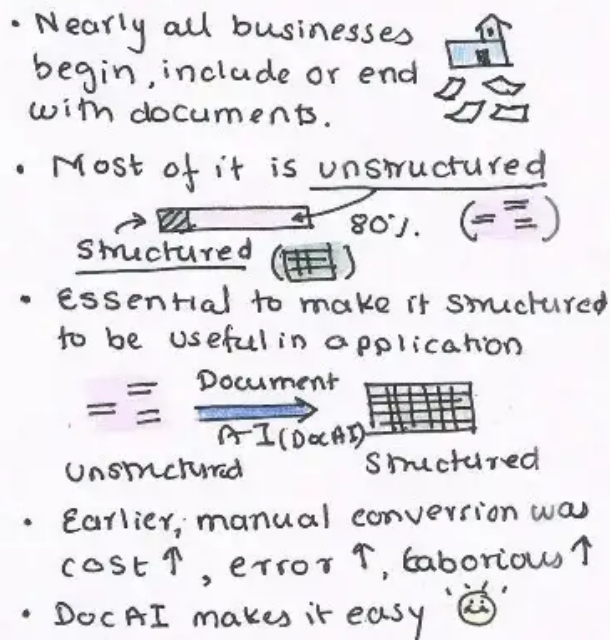 • Nearly all businesses
begin, include or end
with documents.
• Most of it is unstructured
80%.
Structured
• Essential to make it structured
to be useful in application
Document
AI (DocAI)
Unstructured
Structured
• Earlier, manual conversion was
cost ↑, error ↑, laborious ↑
• DocAI makes it easy